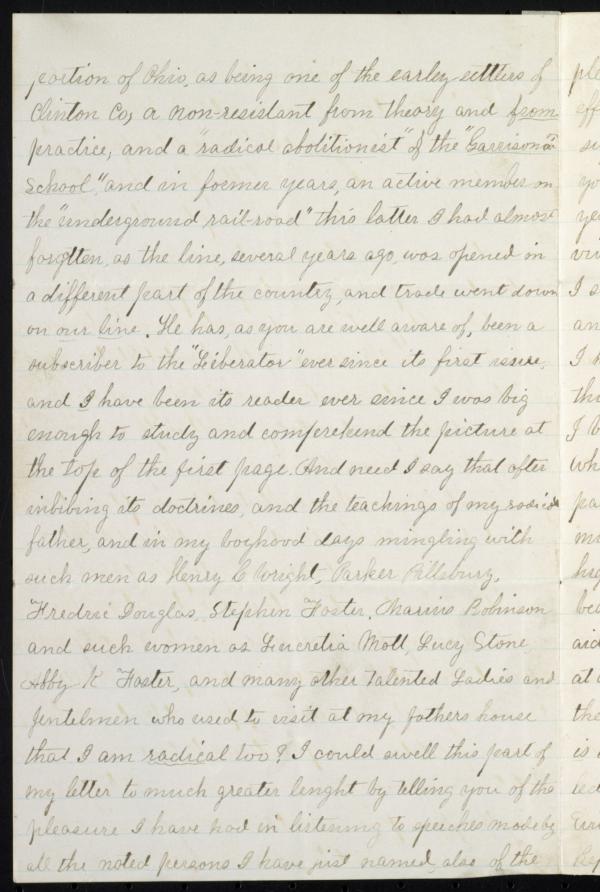 portion of Ohio, as being one of the earley settlers of
Clinton Co, a non-resistant from theory and from
practice, and a "radical abolitionist" of the "Garrisonian
School", and in former years, an active member on
the "underground rail-road" this latter I had almost
forgtten, as the line, several years ago, was opened in
a different part of the country, and trade went down
on our line. He has, as you are well aware of, been a
subscriber to the "Liberator" ever since its first issue,
and I have been its reader ever since I was big
enough to study and comprehend the picture at
the top of the first page. And need I say that after
inbibing its doctrines, and the teachings of my radical
father, and in my boyhood days mingling with
such men as Henry C Wright, Parker Pillsbury,
Fredric Douglas, Stephen Foster, Marius Robinson
and such women as Lucretia Mott, Lucy Stone,
Abby K Foster, and many other Talented Ladies and
Jentelmen who used to visit at my fathers house
that I am radical too? I could swell this part of
my letter to much greater lenght by telling you of the
pleasure I have had in listening to speeches made by
all the noted persons I have just named, also of the